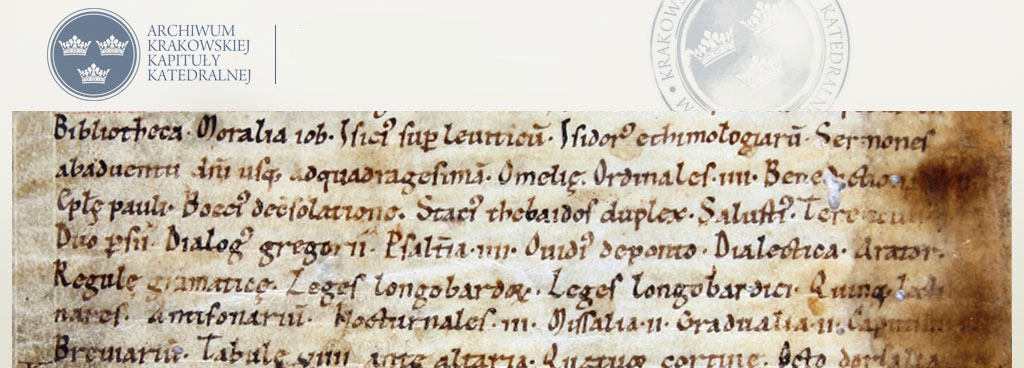 ARCHIWUM
KRAKOWSKIEJ
KAPITUŁY
KATEDRALNEJ
Bibliotheca. Moralia iob. Isici' sup leuiticū. Isidor' ethimologiarū. Sermones
abaduentu dn̄i usq; adquadragesimā. Omelię. Ordinales.iiii.
Ep̄lę pauli. Boeci' decsolatione. Staci' thebaidos duplex. Salusti'.
Duo p̄sii. Dialog' gregorii. Psalt̄ia.iiii. Ouidi' deponto. Dialectica. Arator.
Regulę gramaticę. Leges longobardoꝝ. Leges longobardici. Quinq;
nares. Antifonariū. Nocturnales.iii. Missalia.ii. Gradualia.ii.
Breuiariū. Tabulę ante altaria. Quatuor cortine. Octo dorsalia